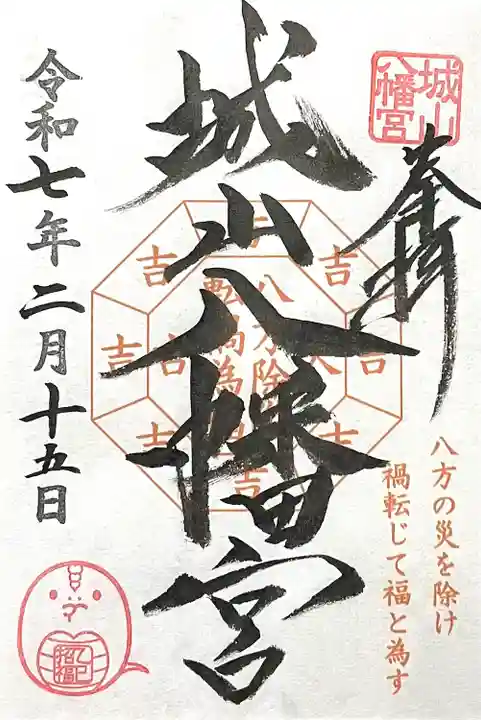 奉拝
城山八幡宮
城山八幡宮
令和七年二月十五日
八方の災を除け
禍転じて福と為す
八方除
転禍為
吉
吉
吉
吉
吉
吉
吉